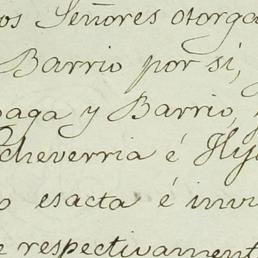 os Señores otorga
Barrio por si,
paga y Barrio,
Echeverria é Hij
o esacta é invi
e respectivament